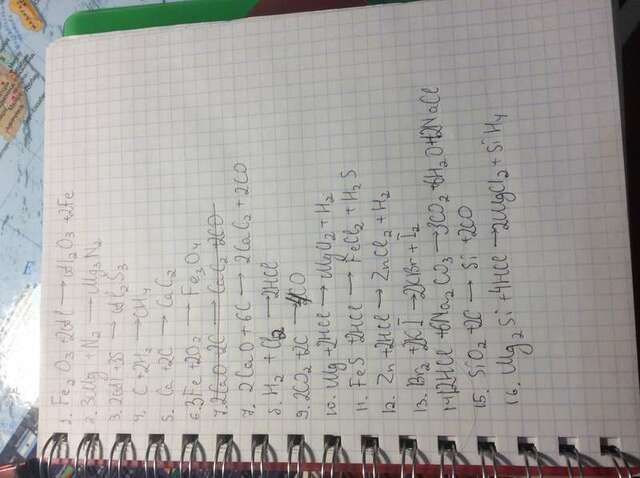 1. Fe2O3 + 2Al → Al2O3 + 2Fe
2. 3Mg N2 → Mg3N2
3. 2Al + 3S → Al2S3
4. C + 2H2 → CH4
5. Ca + 2C → CaC2
6. 3Fe + 2O2 → Fe3O4
7. 2CaO 2C → CaC2 + 2CO
7. 2CaO + 6C → 2CaC2 + 2CO
8 H2 + Cl2 → 2HCl
9. 2CO2 + 2C → 4CO
10. Mg + 2HCl → MgCl2 + H2
11. FeS + 2HCl → FeCl2 + H2S
12. Zn + 2HCl → ZnCl2 + H2
13. Br2 + 2KI → 2KBr + I2
14 12HCl + 6Na2CO3 → 3CO2 + 6H2O + 12NaCl
15. SiO2 + 2C → Si + 2CO
16. Mg2Si + 4HCl → 2MgCl2 + SiH4